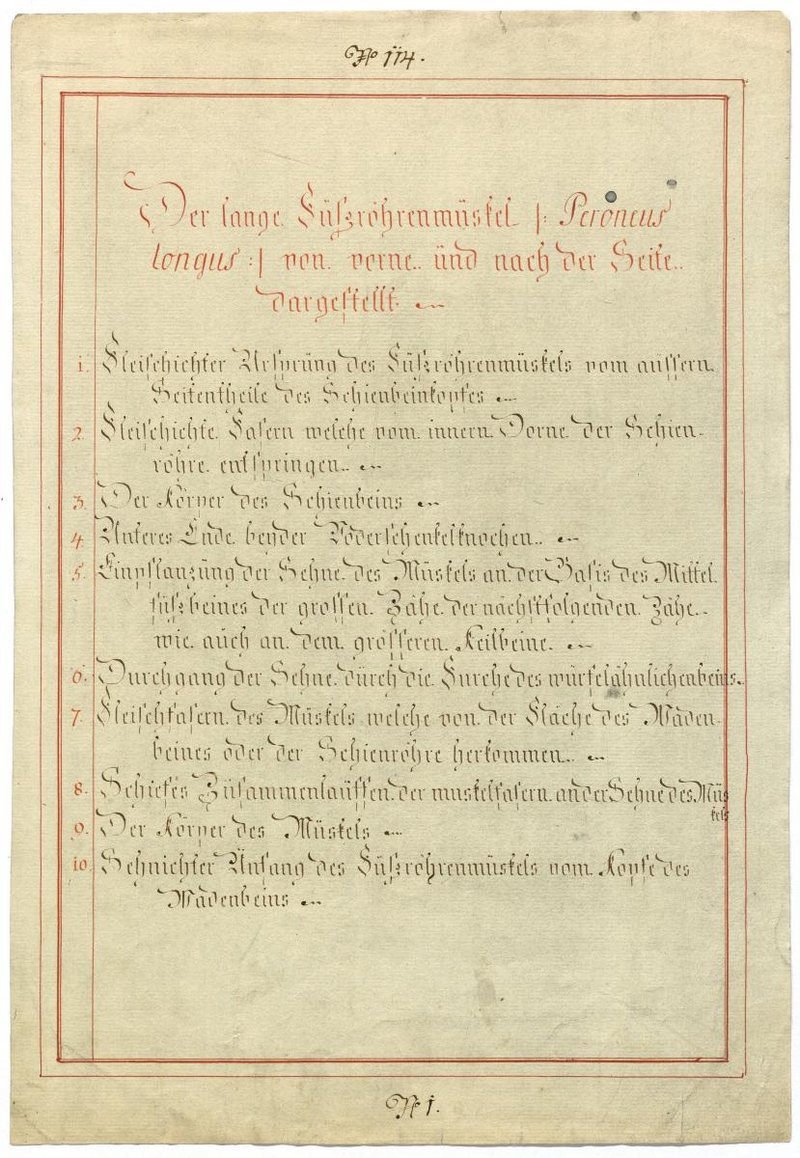 No 114.
Der lange Füßröhrenmüskel /: Peroneus
longus :/ von vorne ünd nach der Seite
dargestellt.
1. Fleischichter Ursprüng des Füßröhrenmüskels vom aussern
Seitentheile des Schienbeinkopfes
2. Fleischichte Fasern welche vom innern Dorne der Schien-
röhre entspringen.
3. Der Körper des Schienbeins
4. Unteres Ende beyder Vöderschenkelknochen.
5. Einpflanzüng der Sehne des Müskels an der Basis des Mittel
füßbeines der grossen Zähe der nächstfolgenden Zähe
wie auch an dem grösseren Keilbeine.
6. Durchgang der Sehne dürch die Fürche des würfelähnlichenbeins.
7. Fleischfasern des Müskels welche von der Fläche des Waden-
beines oder der Schienröhre herkommen.
8. Schiefes Züsammenlauffen der muskelfasern an der Sehne des Müs
kels
9. Der Körper des Müskels
10. Sehnichter Anfang des Füßröhrenmüskels vom Kopfe des
Wadenbeins
No 1.